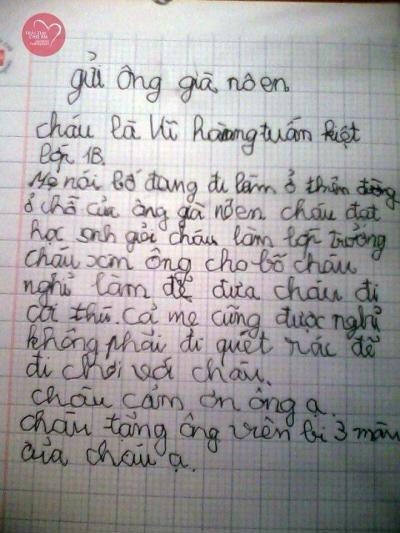 gửi ông già nôen
cháu là Vĩ hoàng tuấn kiệt
lớp 1B.
Mẹ nói bố đang đi làm ở thiên đường
ở chỗ của ông già nôen cháu đạt
học sinh giỏi cháu làm lớp trưởng
cháu xin ông cho bố cháu
nghỉ làm để đưa cháu đi
cả mẹ cũng được nghỉ
không phải đi quét rác để
đi chơi với cháu.
cháu cảm ơn ông ạ.
cháu tặng ông viên bi 3 màu
của cháu ạ.